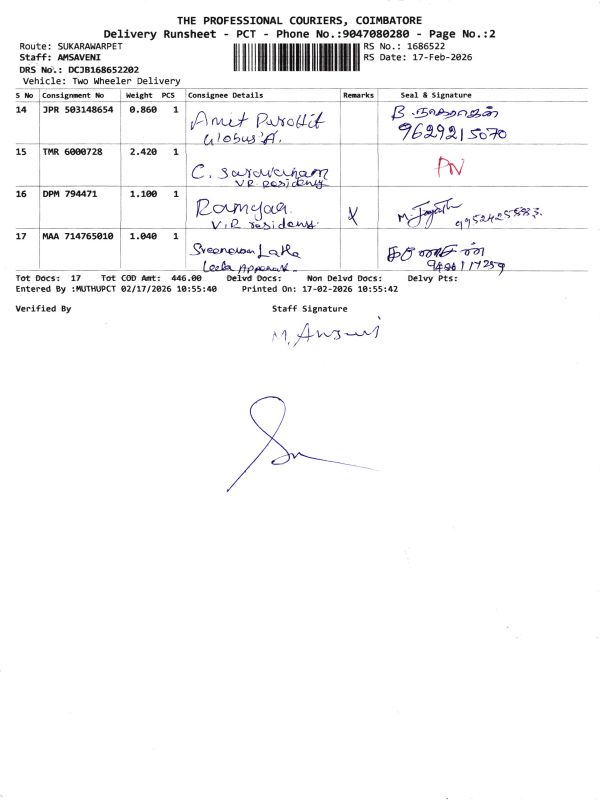 THE PROFESSIONAL COURIERS, COIMBATORE
Delivery Runsheet - PCT - Phone No.:9047080280 - Page No.:2
Route: SUKARAWARPET
RS No.: 1686522
Staff: AMSAVENI
RS Date: 17-Feb-2026
DRS No.: DCJB168652202
Vehicle: Two Wheeler Delivery
S No Consignment No Weight PCS Consignee Details Remarks Seal & Signature
14 JPR 503148654 0.860 1 Amet Purohit B.
Globus A. 9629215070
15 TMR 6000728 2.420 1 C. Saravanam
VR residensy
16 DPM 794471 1.100 1 Ramyaa. X
V.R residensy. 9952425583.
17 MAA 714765010 1.040 1 Latha
Leela
Tot Docs: 17 Tot COD Amt: 446.00 Delvd Docs: Non Delvd Docs: Delvy Pts:
Entered By :MUTHUPCT 02/17/2026 10:55:40 Printed On: 17-02-2026 10:55:42
Verified By Staff Signature